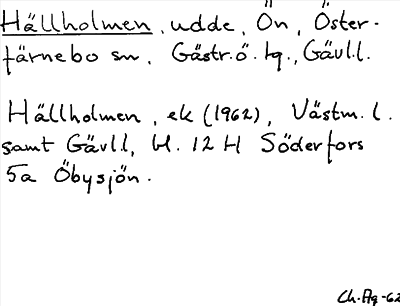 Hällholmen, udde, Ön, Öster-
färnebo sn, Gästr.ö. tg., Gävl.l.
Hällholmen, ek (1962), Västm. l.
samt Gävl.l, bl. 12 H Söderfors
5a Öbysjön.
Ch.Ag -62